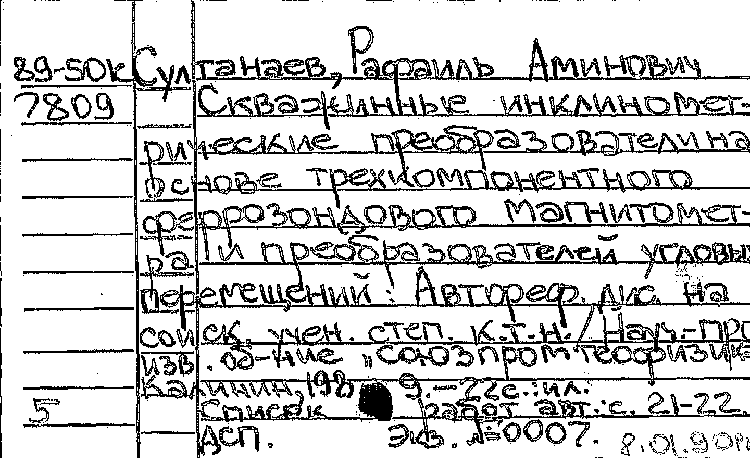 89-50к Султанаев, Рафаиль Аминович
7809 Скважинные инклиномет-
рические преобразователи на
основе трехкомпонентного
феррозондового магнитомет-
ра и преобразователей угловых
перемещений: Автореф. дис. на
соиск. учен. степ. к.т.н. / Науч.-про
изв. об-ние "союзпромгеофизика
Калинин, 1989. - 22с.: ил.
5 Список работ авт.: с. 21-22.
ДСП. Экз. №0007. 8.01.90